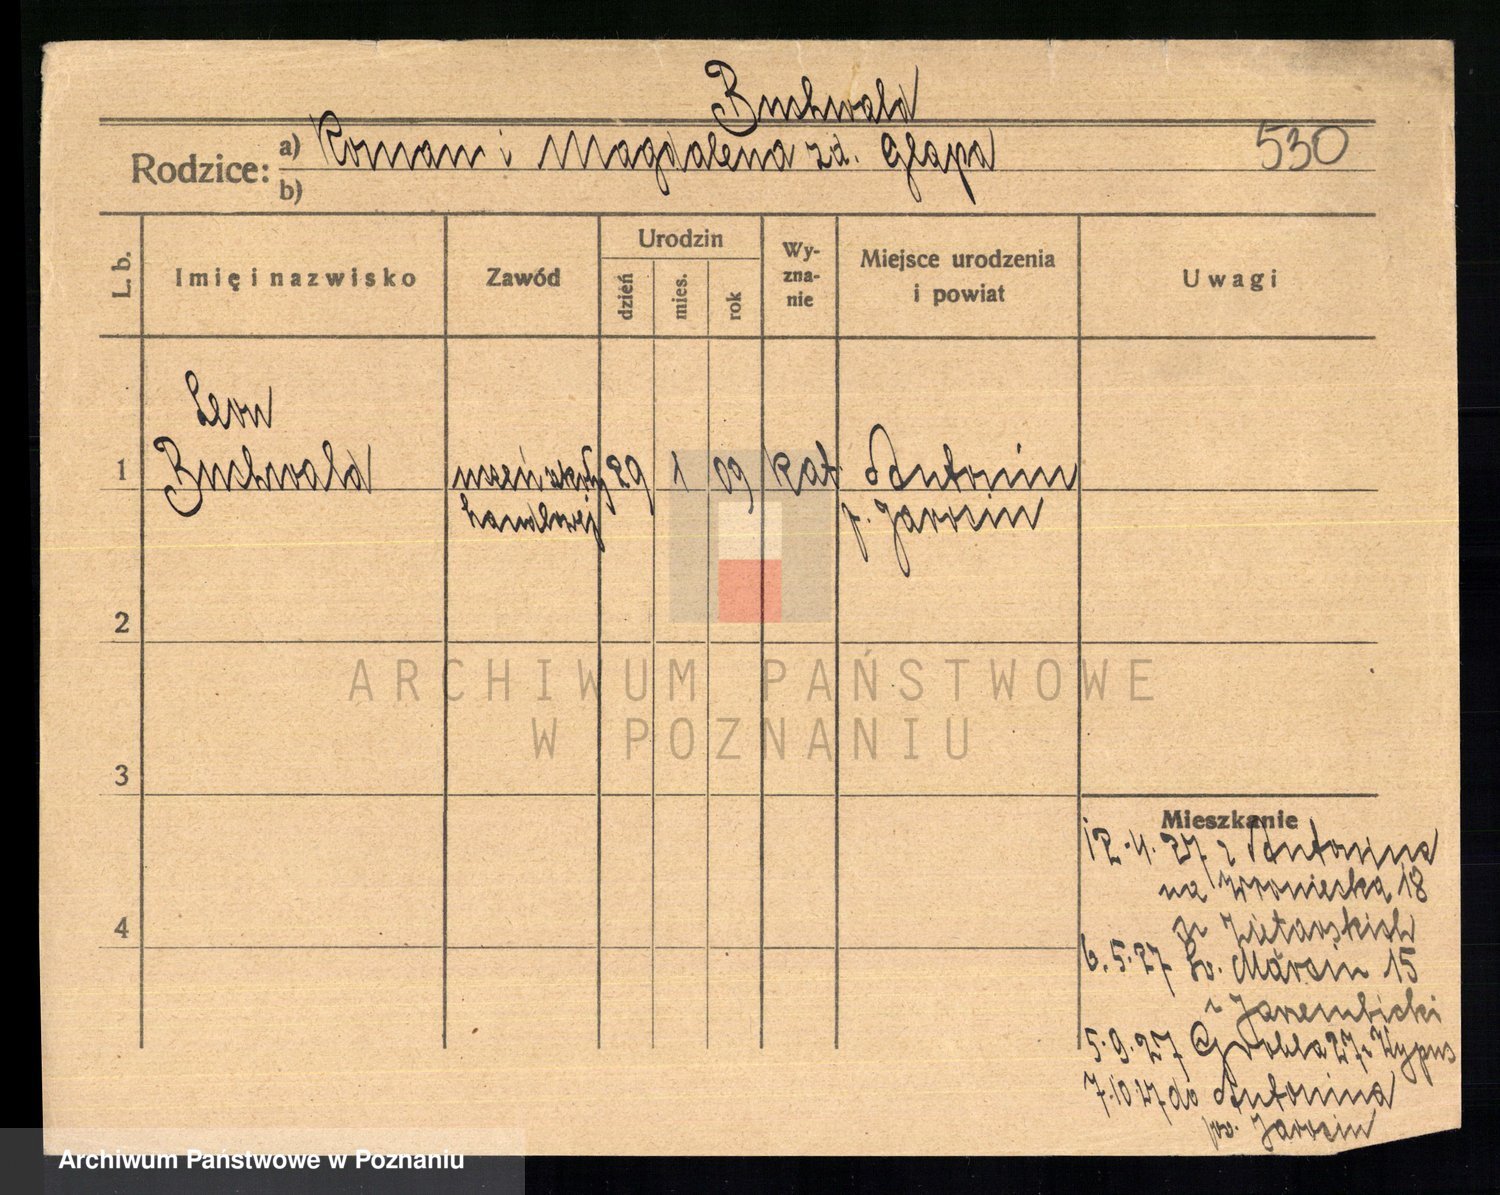 Buchwald
Rodzice: a) Roman i Magdalena zd. Glapa
530
b)
L. b.
Imię i nazwisko
Zawód
Urodzin
dzień
mies.
rok
Wy-
zna-
nie
Miejsce urodzenia
i powiat
Uwagi
Leon
1 Buchwald uczeń szkoły 29 1 09 kat Antonin
handlowej p. Jarocin
2
ARCHIWUM PAŃSTWOWE
W POZNANIU
3
Mieszkanie
12.4.27 z Antonina
na Wroniecka 18
6.5.27 Św. Marcin 15
5.9.27 Grobla 27
4
7.10.27 do Antonina
pow. Jarocin
Archiwum Państwowe w Poznaniu